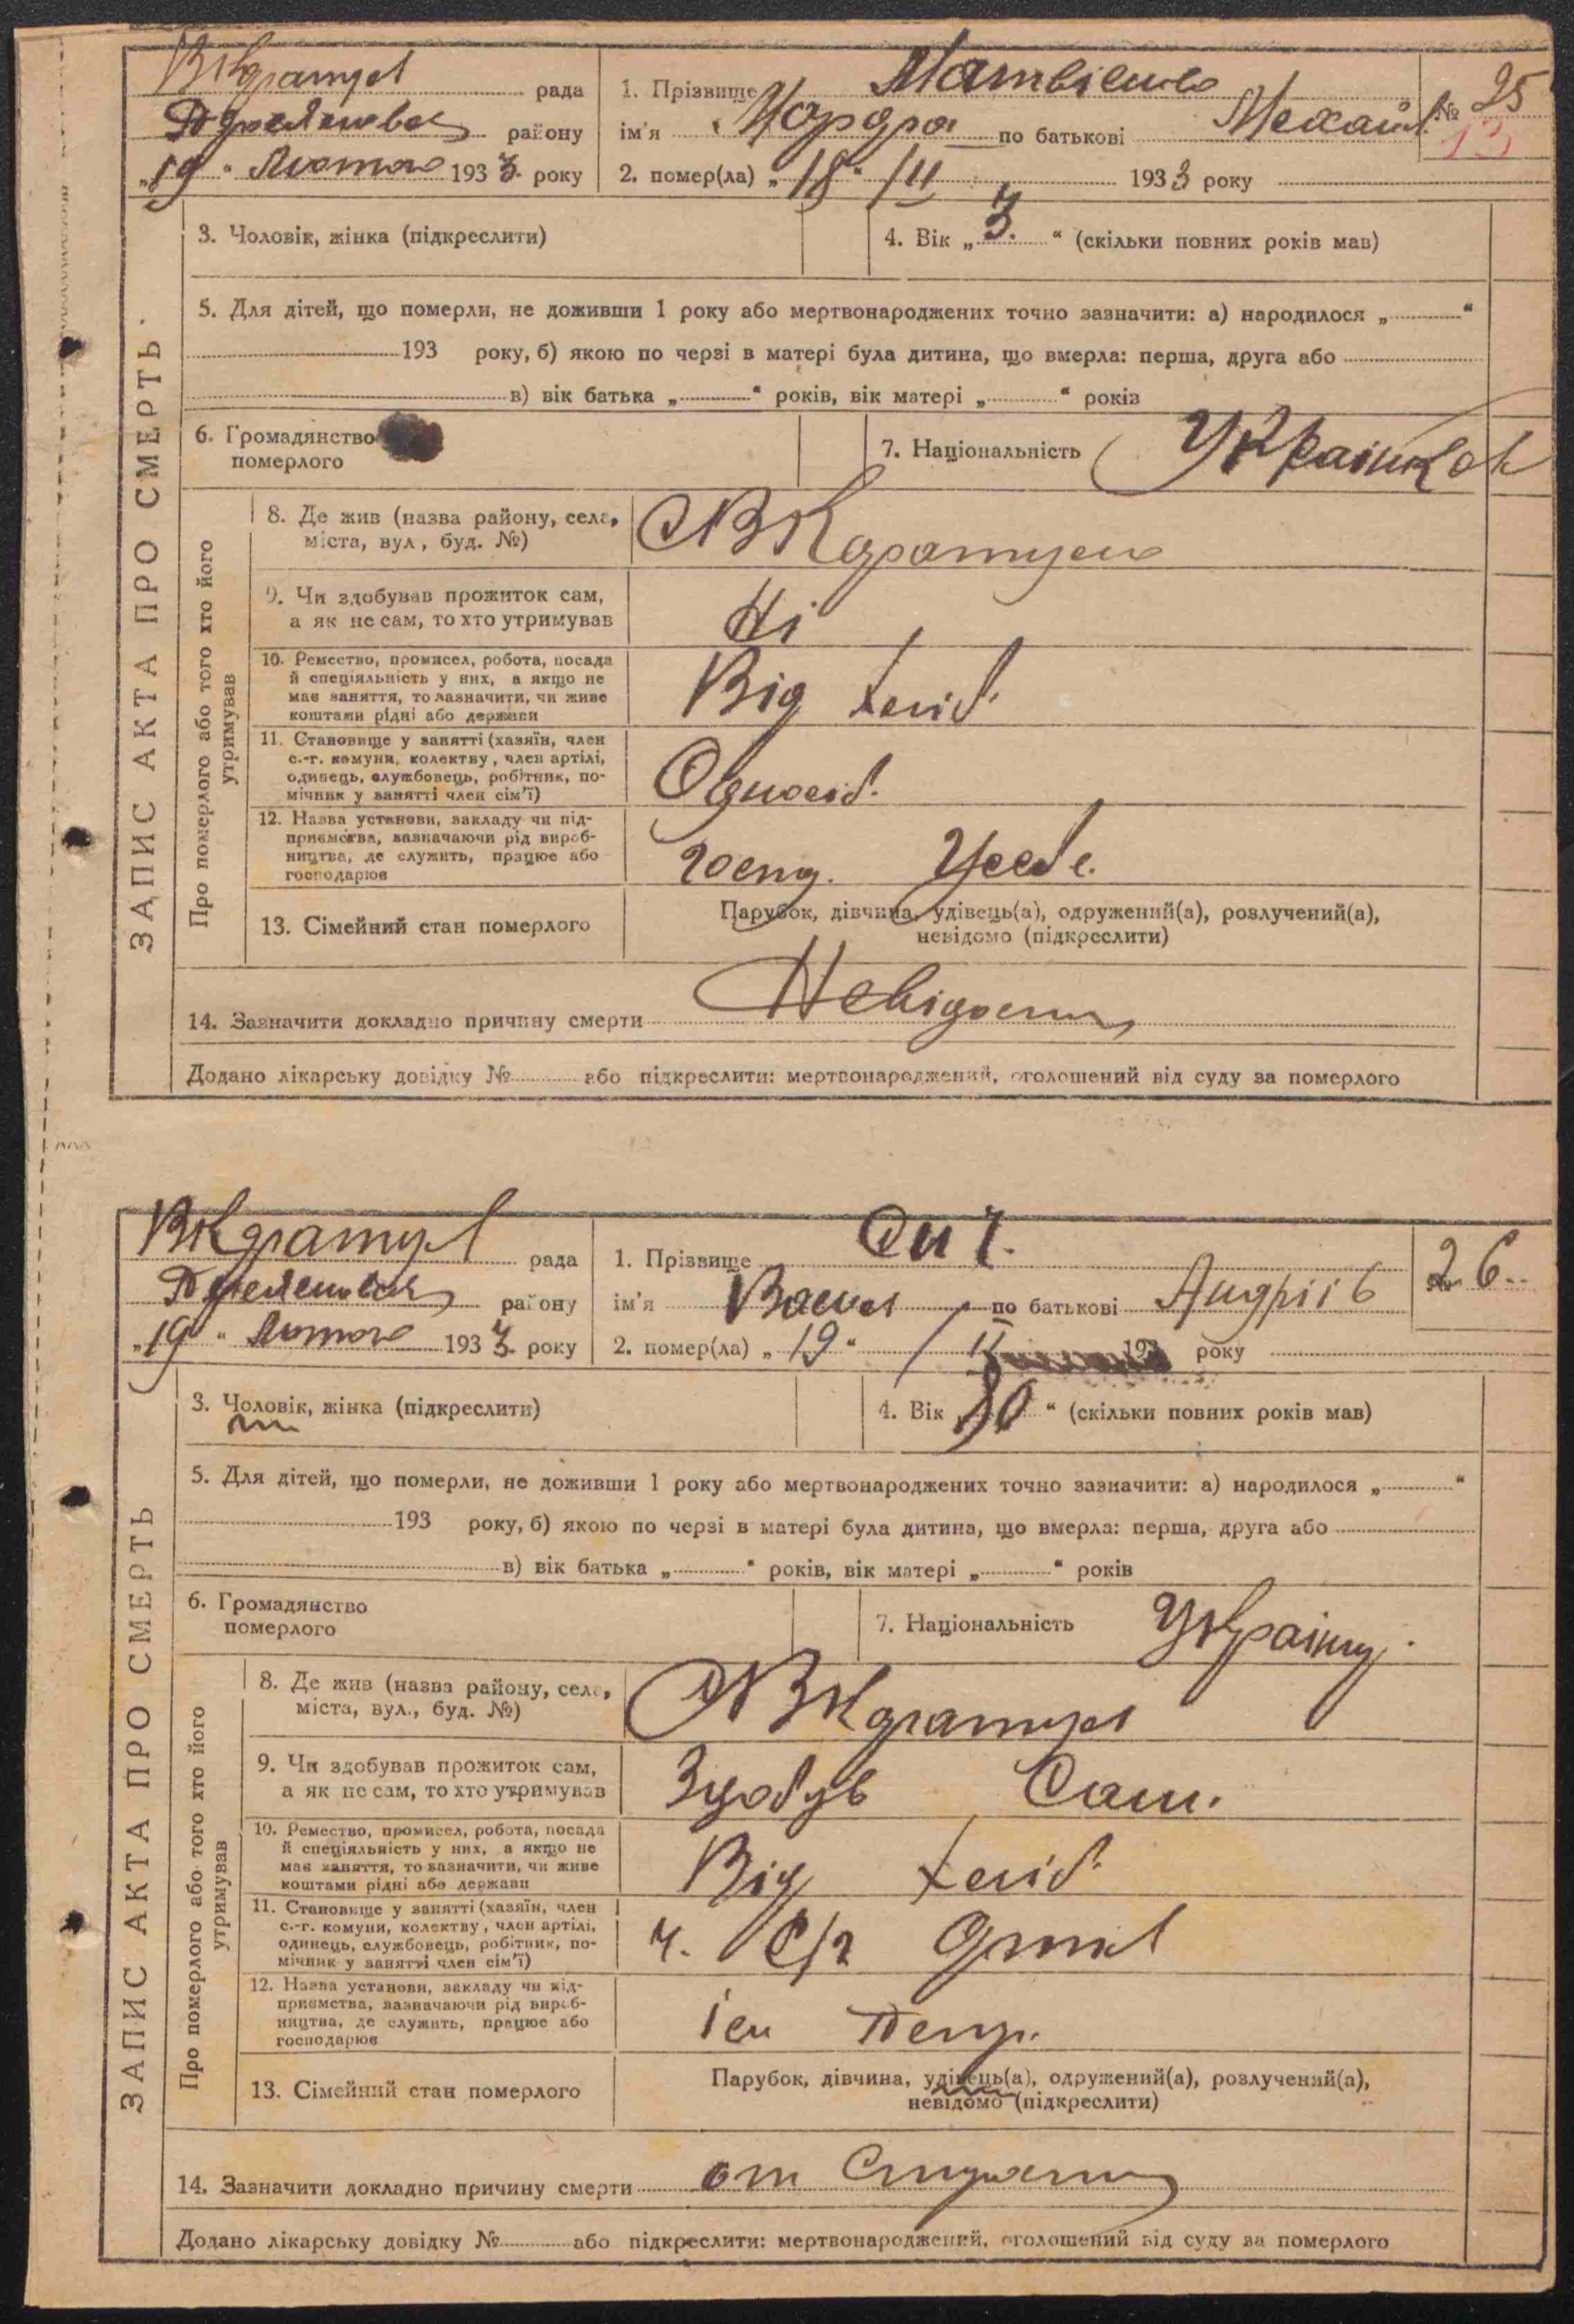 рада
району
„19“ Лютого 1933 року
1. Прізвище Матвієнко
ім'я по батькові Механл.
№ 25
13
2. помер(ла) „18“ /II 1933 року
ЗАПИС АКТА ПРО СМЕРТЬ.
3. Чоловік, жінка (підкреслити)
4. Вік „3.“ (скільки повних років мав)
5. Для дітей, що померли, не доживши 1 року або мертвонароджених точно зазначити: а) народилося „ “
193 року, б) якою по черзі в матері була дитина, що вмерла: перша, друга або
в) вік батька „ “ років, вік матері „ “ років
6. Громадянство
померлого
7. Національність Українка
Про померлого або того хто його
утримував
8. Де жив (назва району, села,
міста, вул, буд. №)
9. Чи здобував прожиток сам,
а як не сам, то хто утримував
Ні
10. Ремество, промисел, робота, посада
й спеціяльність у них, а якщо не
має заняття, то зазначити, чи живе
коштами рідні або держави
Від хліб.
11. Становище у занятті (хазяїн, член
с.-г. комуни, колектву, член артілі,
одинець, службовець, робітник, по-
мічник у занятті член сім'ї)
Одноосіб.
12. Назва установи, закладу чи під-
приємства, зазначаючи рід вироб-
ництва, де служить, працює або
господарює
Госпд. Усебе.
13. Сімейний стан померлого
Парубок, дівчина, удівець(а), одружений(а), розлучений(а),
невідомо (підкреслити)
14. Зазначити докладно причину смерти Невідомо
Додано лікарську довідку № або підкреслити: мертвонароджений, оголошений від суду за померлого
рада
району
„19“ Лютого 1933 року
1. Прізвище
ім'я по батькові Андріів
26..
2. помер(ла) „19“ / II 193 року
ЗАПИС АКТА ПРО СМЕРТЬ
3. Чоловік, жінка (підкреслити)
4. Вік „80“ (скільки повних років мав)
5. Для дітей, що померли, не доживши 1 року або мертвонароджених точно зазначити: а) народилося „ “
193 року, б) якою по черзі в матері була дитина, що вмерла: перша, друга або
в) вік батька „ “ років, вік матері „ “ років
6. Громадянство
померлого
7. Національність Українц.
Про померлого або того хто його
утримував
8. Де жив (назва району, села,
міста, вул., буд. №)
9. Чи здобував прожиток сам,
а як не сам, то хто утримував
Здобув Сам.
10. Ремество, промисел, робота, посада
й спеціяльність у них, а якщо не
має заняття, то зазначити, чи живе
коштами рідні або держави
Від хліб.
11. Становище у занятті (хазяїн, член
с.-г. комуни, колектву, член артілі,
одинець, службовець, робітник, по-
мічник у занятті член сім'ї)
ч. С/г
12. Назва установи, закладу чи під-
приємства, зазначаючи рід вироб-
ництва, де служить, працює або
господарює
Ім Петр.
13. Сімейний стан померлого
Парубок, дівчина, удівець(а), одружений(а), розлучений(а),
невідомо (підкреслити)
14. Зазначити докладно причину смерти от
Додано лікарську довідку № або підкреслити: мертвонароджений, оголошений від суду за померлого